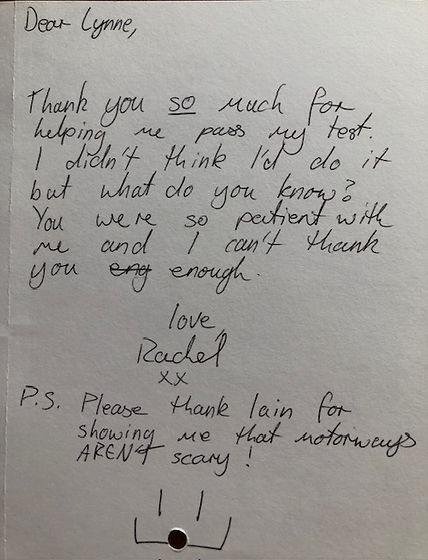 Dear Lynne,
Thank you so much for
helping me pass my test.
I didn't think I'd do it
but what do you know?
You were so patient with
me and I can't thank
you eng enough.
love,
Rachel
xx
P.S. Please thank Iain for
showing me that motorways
AREN'T scary!